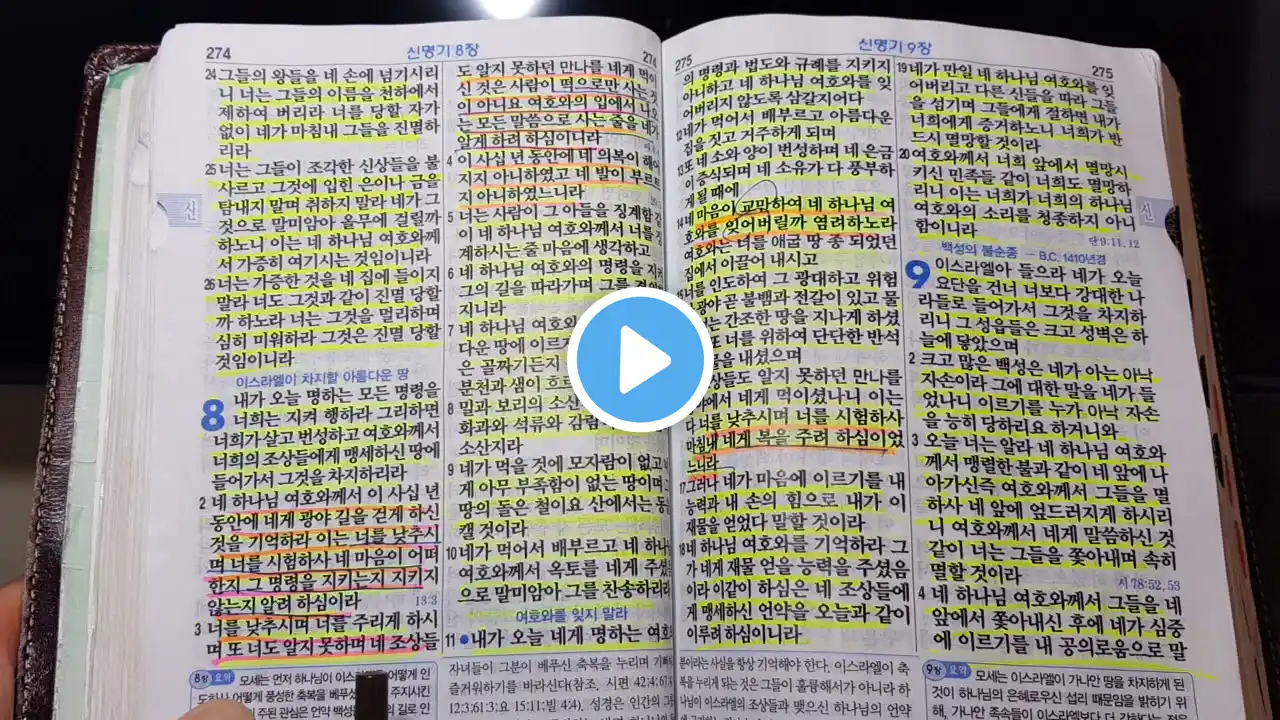 274
신명기 8장
274
24 그들의 왕들을 네 손에 넘기시리
니 너는 그들의 이름을 천하에서
제하여 버리라 너를 당할 자가
없이 네가 마침내 그들을 진멸하
리라
25 너는 그들이 조각한 신상들을 불
사르고 그것에 입힌 은이나 금을
탐내지 말며 취하지 말라 네가 그
것으로 말미암아 올무에 걸릴까
하노니 이는 네 하나님 여호와께
서 가증히 여기시는 것임이니라
26 너는 가증한 것을 네 집에 들이지
말라 너도 그것과 같이 진멸 당할
까 하노라 너는 그것을 멀리하며
심히 미워하라 그것은 진멸 당할
것임이니라
이스라엘이 차지할 아름다운 땅
8 내가 오늘 명하는 모든 명령을
너희는 지켜 행하라 그리하면
너희가 살고 번성하고 여호와께서
너희의 조상들에게 맹세하신 땅에
들어가서 그것을 차지하리라
2 네 하나님 여호와께서 이 사십 년
동안에 네게 광야 길을 걷게 하신
것을 기억하라 이는 너를 낮추시
며 너를 시험하사 네 마음이 어떠
한지 그 명령을 지키는지 지키지
않는지 알려 하심이라
13:3
3 너를 낮추시며 너를 주리게 하시
며 또 너도 알지 못하며 네 조상들
8장 요약 모세는 먼저 하나님이 이스 어떻게 인
어떻게 풍성한 축복을 베푸신 주지시킨
주된 관심은 언약 백성 길로 인
도 알지 못하던 만나를 네게 먹이
신 것은 사람이 떡으로만 사는 것
이 아니요 여호와의 입에서 나오
는 모든 말씀으로 사는 줄을 네가
알게 하려 하심이니라
4 이 사십 년 동안에 네 의복이 해어
지지 아니하였고 네 발이 부르트
지 아니하였느니라
5 너는 사람이 그 아들을 징계함 같
이 네 하나님 여호와께서 너를 징
계하시는 줄 마음에 생각하고
6 네 하나님 여호와의 명령을 지켜
그의 길을 따라가며 그를
지니라
7 네 하나님 여호와
다운 땅에 이르
은 골짜기든지
분천과 샘이 흐르
8 밀과 보리의 소산
화과와 석류와 감람
소산지라
9 네가 먹을 것에 모자람이 없고 네
게 아무 부족함이 없는 땅이며 그
땅의 돌은 철이요 산에서는 동을
캘 것이라
10 네가 먹어서 배부르고 네 하나님
여호와께서 옥토를 네게 주셨음
으로 말미암아 그를 찬송하리라
여호와를 잊지 말라
11 내가 오늘 네게 명하는 여호와
자녀들이 그분이 베푸신 축복을 누리며 기뻐
즐거워하기를 바라신다(참조, 시편 42:4;67:4
12:3;61:3;요 15:11;빌 4:4). 성경은 인간의 그
275
신명기 9장
275
의 명령과 법도와 규례를 지키지
아니하고 네 하나님 여호와를 잊
어버리지 않도록 삼갈지어다
12 네가 먹어서 배부르고 아름다운
집을 짓고 거주하게 되며
13 또 네 소와 양이 번성하며 네 은금
이 증식되며 네 소유가 다 풍부하
게 될 때에
14 네 마음이 교만하여 네 하나님 여
호와를 잊어버릴까 염려하노라
여호와는 너를 애굽 땅 종 되었던
집에서 이끌어 내시고
너를 인도하여 그 광대하고 위험
광야 곧 불뱀과 전갈이 있고 물
는 간조한 땅을 지나게 하셨
또 너를 위하여 단단한 반석
을 내셨으며
상들도 알지 못하던 만나를
야에서 네게 먹이셨나니 이는
다 너를 낮추시며 너를 시험하사
마침내 네게 복을 주려 하심이었
느니라
17 그러나 네가 마음에 이르기를 내
능력과 내 손의 힘으로 내가 이
재물을 얻었다 말할 것이라
18 네 하나님 여호와를 기억하라 그
가 네게 재물 얻을 능력을 주셨음
이라 이같이 하심은 네 조상들에
게 맹세하신 언약을 오늘과 같이
이루려 하심이니라
분이라는 사실을 항상 기억해야 한다. 이스라엘이 축
복을 누리게 되는 것은 그들이 훌륭해서가 아니라 하
나님이 이스라엘의 조상들과 맺으신 하나님의 언약
19 네가 만일 네 하나님 여호와를 잊
어버리고 다른 신들을 따라 그들
을 섬기며 그들에게 절하면 내가
너희에게 증거하노니 너희가 반
드시 멸망할 것이라
20 여호와께서 너희 앞에서 멸망시
키신 민족들 같이 너희도 멸망하
리니 이는 너희가 너희의 하나님
여호와의 소리를 청종하지 아니
함이니라
단9:11, 12
백성의 불순종 — B.C. 1410년경
9 이스라엘아 들으라 네가 오늘
요단을 건너 너보다 강대한 나
라들로 들어가서 그것을 차지하
리니 그 성읍들은 크고 성벽은 하
늘에 닿았으며
2 크고 많은 백성은 네가 아는 아낙
자손이라 그에 대한 말을 네가 들
었나니 이르기를 누가 아낙 자손
을 능히 당하리요 하거니와
3 오늘 너는 알라 네 하나님 여호와
께서 맹렬한 불과 같이 네 앞에 나
아가신즉 여호와께서 그들을 멸
하사 네 앞에 엎드러지게 하시리
니 여호와께서 네게 말씀하신 것
같이 너는 그들을 쫓아내며 속히
멸할 것이라
시 78:52, 53
4 네 하나님 여호와께서 그들을 네
앞에서 쫓아내신 후에 네가 심중
에 이르기를 내 공의로움으로 말
9장 요약 이스라엘이 가나안 땅을 차지하게 된
것이 하나님의 은혜로우신 섭리 때문임을 밝히기 위
해, 가나안 족속들이 이스라엘보다 더 강하다는 점을
신
신